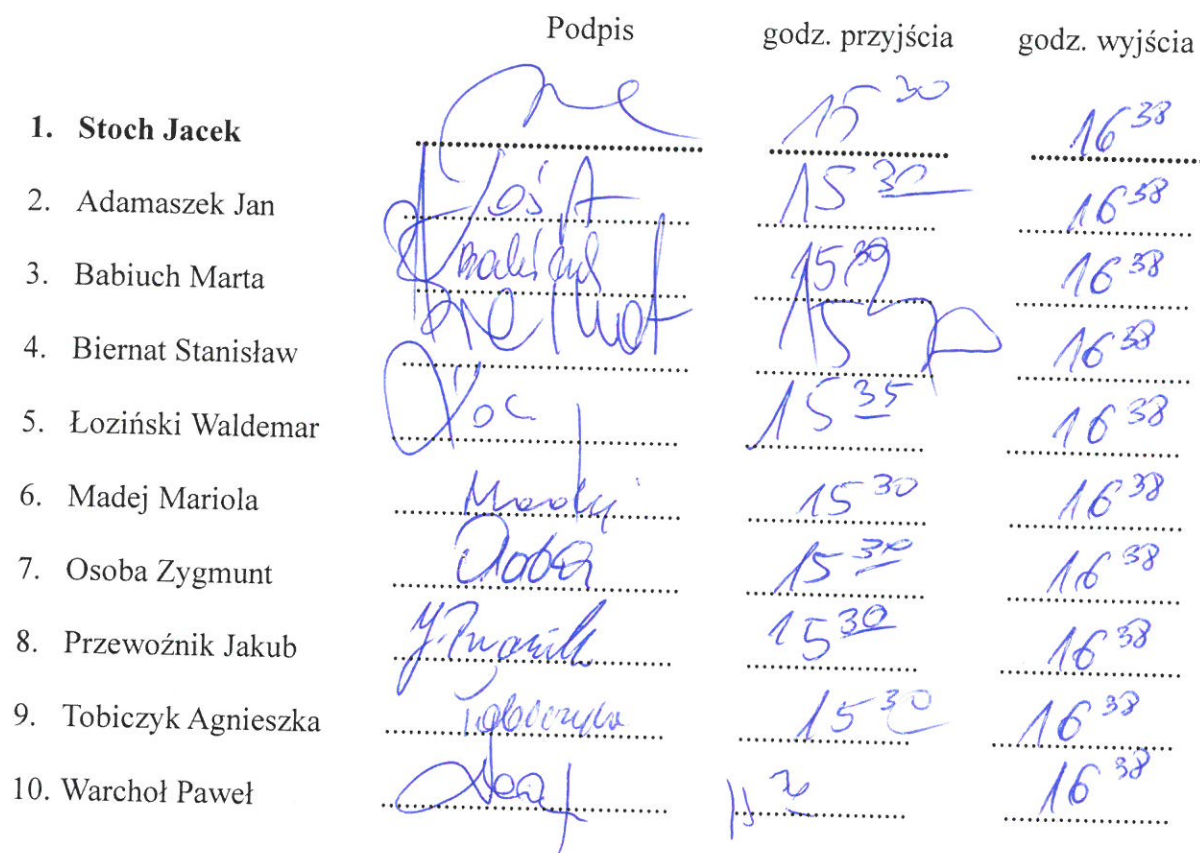 Podpis godz. przyjścia godz. wyjścia
1. Stoch Jacek 15 30 16 38
2. Adamaszek Jan 15 30 16 38
3. Babiuch Marta 15 30 16 38
4. Biernat Stanisław 15 16 38
5. Łoziński Waldemar 15 35 16 38
6. Madej Mariola Madej 15 30 16 38
7. Osoba Zygmunt Osoba 15 30 16 38
8. Przewoźnik Jakub 15 30 16 38
9. Tobiczyk Agnieszka 15 30 16 38
10. Warchoł Paweł 16 38